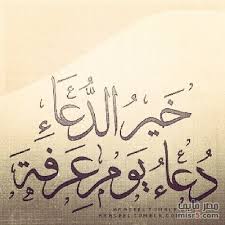 خَيرُ الدُّعَاءِ
دُعَاءُ يَومِ عَرَفَةَ
ARASEEL.TUMBLR.COM
مصر فايف
imisr5.com